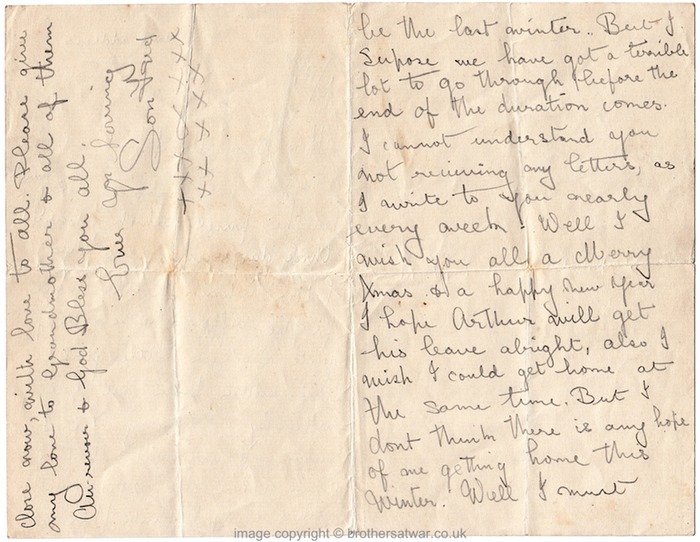 be the last winter. But I
Supose we have got a terrible
lot to go through before the
end of the duration comes.
I cannot understand you
not recieving any letters, as
I write to you nearly
every week. Well I
wish you all a Merry
Xmas & a happy New Year
I hope Arthur will get
his leave alright, also I
wish I could get home at
the same time. But I
dont think there is any hope
of me getting home this
Winter. Well I must
close now, with love to all. Please give
my love to Grandmother & all of them
Au revoir & God Bless you all.
Your loving
Son Fred
xxxxxxxx
xxxxxx
image copyright © brothersatwar.co.uk